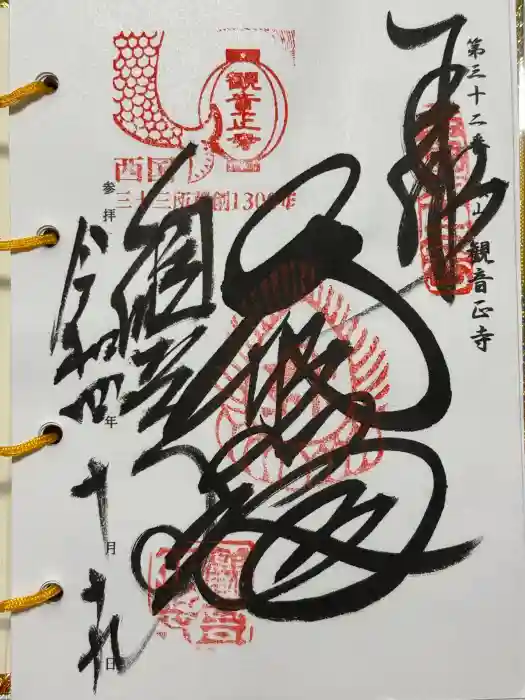 第三十二番 山 観音正寺
奉
大悲殿
観音正寺
参拝
令和四年
十月十九日
観音正寺
西国
三十三所草創1300年